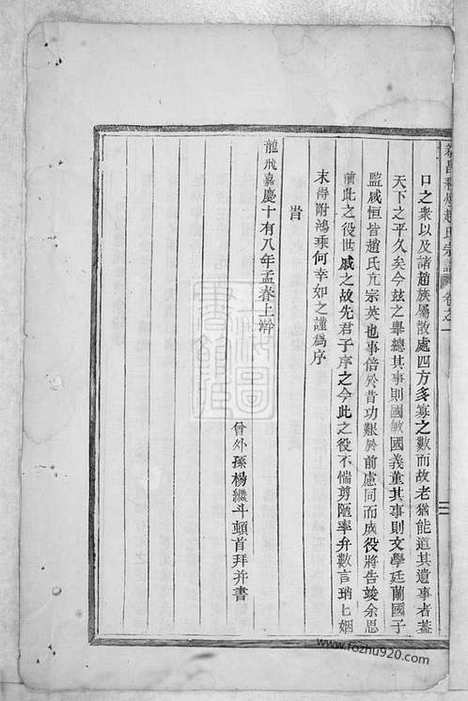 趙氏宗譜 卷之一
口之衆以及諸趙族屬散處四方多寡之數而故老猶能道其遺事者蓋
天下之平久矣今茲之舉總其事則國敏國義董其事則文學廷蘭國子
監咸恒皆趙氏亢宗英也事倍於昔功艱於前慮同而成役將告竣余思
前此之役世戚之故先君子序之今此之役不惴剪陋率弁數言琑匕姻
末得附鴻乘何幸如之謹爲序
旹
龍飛嘉慶十有八年孟春上澣
曾外孫楊繼斗頓首拜并書
三
www.fozhu920.com